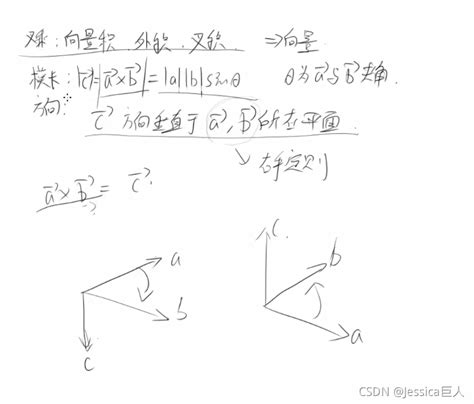 叉乘:向量积、外积、叉积. ⇒向量
模长:|c⃗|=|a⃗×b⃗|=|a||b|sinθ θ为a⃗与b⃗夹角.
方向:
c⃗ 方向垂直于 a⃗,b⃗所在平面.
↘右手定则
a⃗×b⃗= c⃗.
a
b
c
c.
b
a
CSDN @Jessica巨人